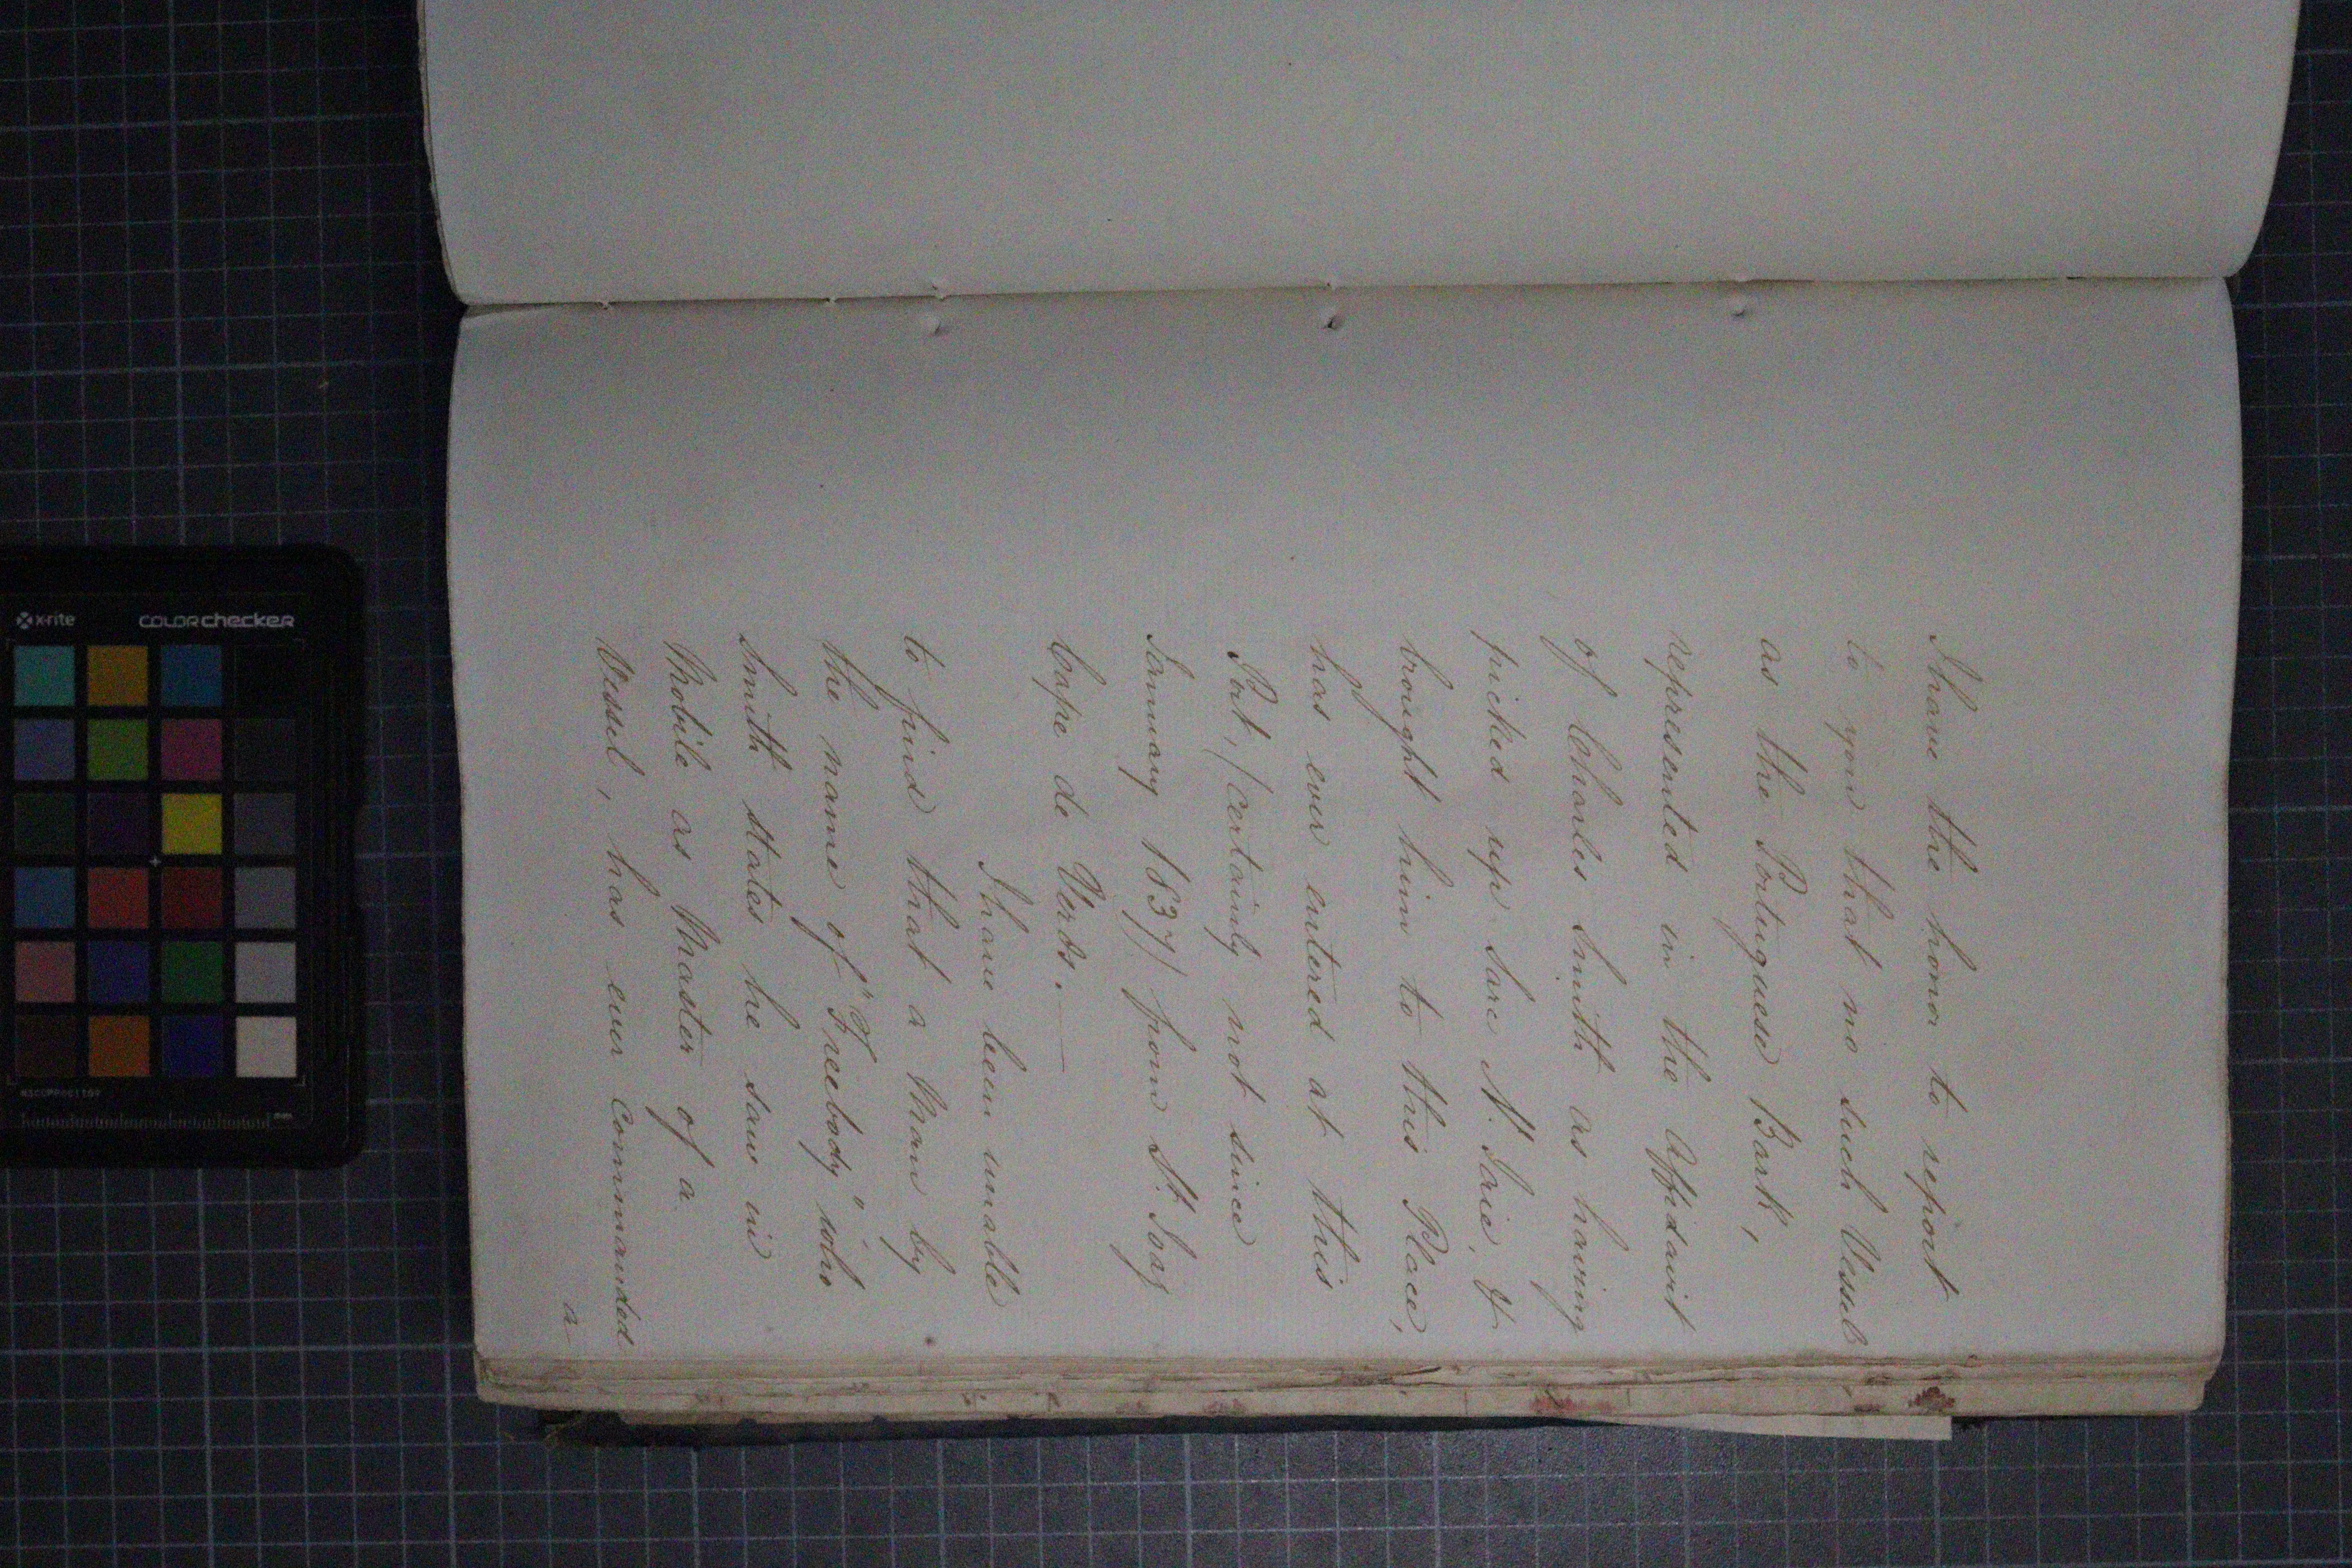 I have the honor to report
to you that no such Vessel
as the Portuguese Bark,
represented in the Affidavit
of Charles Smith as having
picked up Sare N. Sare, &
brought him to this Place,
has ever entered at this
Port, (certainly not since
January 1837) from St. Jag
Cape de Verds.—
I have been unable
to find that a Man by
the name of "T. Freebody" who
Smith states he saw in
Mobile as Master of a
Vessel, has ever commanded
a
x-rite
colorchecker
MSCCPPCC1109
mm